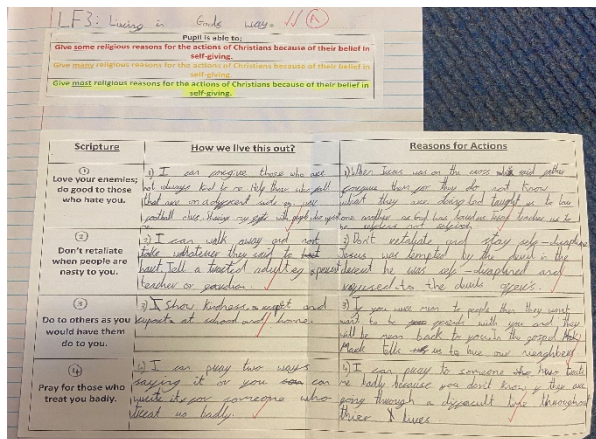 LF3: Living in Gods way.
Pupil is able to:
Give some religious reasons for the actions of Christians because of their belief in
self-giving.
Give many religious reasons for the actions of Christians because of their belief in
self-giving.
Give most religious reasons for the actions of Christians because of their belief in
self-giving.
Scripture
How we live this out?
Reasons for Actions
①
Love your enemies;
do good to those
who hate you.
1) I can forgive those who are
not always kind to me. Help those who
that are on a
football
1) When Jesus was on the cross said father
forgive them for they do not know
what they are doing God taught us to love
one another as
②
Don't retaliate
when people are
nasty to you.
2) I can walk away and not
take whatever they said to
heart, Tell a trusted adult eg
teacher or
2) Don't retaliate and stay self-
Jesus was tempted by the devil in the
desert he was self- and
refused to the devils
③
Do to others as you
would have them
do to you.
3) I show kindness, and
at school and home.
3) If you were mean to people then they wont
want to be friends with you and they
will be mean back to you. In the gospel
Mark talks us to love our neighbour
④
Pray for those who
treat you badly.
4) I can pray two ways
saying it or you can
write it for someone who
treat us badly.
4) I can pray to someone who
me badly because you don't know if they are
going through a time throughout
lives